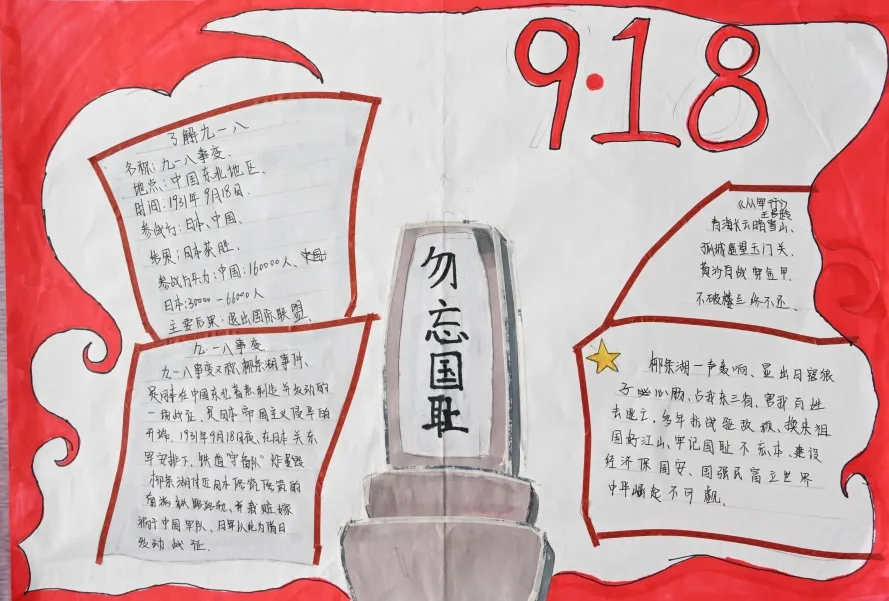 9·18
了解九一八
名称：九一八事变.
地点：中国东北地区.
时间：1931年9月18日.
参战方：日本、中国.
结果：日本获胜.
参战方兵力：中国：160000人、
日本：30000-66000人
主要后果：退出国际联盟.
九·一八事变
九一八事变又称 柳条湖事件、
是日本在中国东北蓄意制造并发动的
一场战争、是日本帝国主义侵华的
开端. 1931年9月18日夜、在日本关东
军安排下、铁道"守备队"炸毁
柳条湖附近日本修筑的
南满铁路路轨、并栽赃嫁
祸于中国军队、日军以此为借口
发动战争.
勿忘国耻
《从军行》
王昌龄
青海长云暗雪山、
孤城遥望玉门关、
黄沙百战穿金甲.
不破楼兰终不还.
柳条湖一声轰响、显出日寇狼
子心肠、占我东三省、害我百姓
去逃亡、多年抗战驱敌寇、换来祖
国好江山、牢记国耻不忘本、建设
经济保国安、国强民富立世界
中华崛起不可